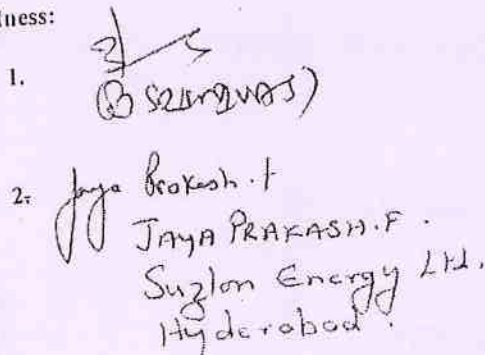 ness:
1.
2. Jaya Prakash.f
JAYA PRAKASH.F.
Suzlon Energy Ltd.
Hyderabad.